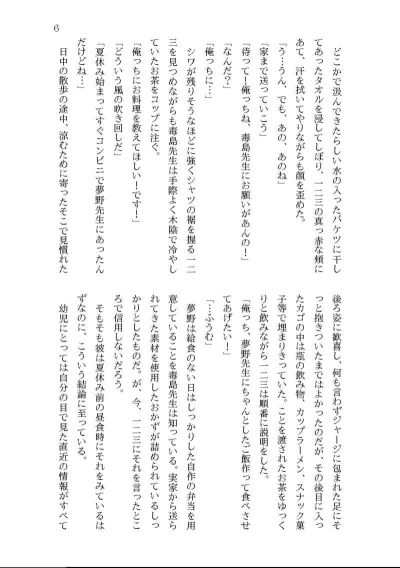 6
どこかで汲んできたらしい水の入ったバケツに干し
てあったタオルを浸してしぼり、一二三の真っ赤な頬に
あて、汗を拭いてやりながらも顔を歪めた。
「う…うん、でも、あの、あのね」
「家まで送っていこう」
「待って！俺っちね、毒島先生にお願いがあんの！」
「なんだ？」
「俺っちに…」
シワが残りそうなほどに強くシャツの裾を握る一二
三を見つめながらも毒島先生は手際よく木陰で冷やし
ていたお茶をコップに注ぐ。
「俺っちにお料理を教えてほしい！です！」
「どういう風の吹き回しだ」
「夏休み始まってすぐコンビニで夢野先生にあったん
だけどね…」
日中の散歩の途中、涼むために寄ったそこで見慣れた
後ろ姿に歓喜し、何も言わずジャージに包まれた足にそ
っと抱きついたまではよかったのだが、その後目に入っ
たカゴの中は瓶の飲み物、カップラーメン、スナック菓
子等で埋まりきっていた。ことを渡されたお茶をゆっく
りと飲みながら一二三は順番に説明をした。
「俺っち、夢野先生にちゃんとしたご飯作って食べさせ
てあげたい！」
「…ふうむ」
夢野は給食のない日はしっかりした自作の弁当を用
意していることを毒島先生は知っている。実家から送ら
れてきた素材を使用したおかずが詰められているしっ
かりとしたものだ。が、今、一二三にそれを言ったとこ
ろで信用しないだろう。
そもそも彼は夏休み前の昼食時にそれをみているは
ずなのに、こういう結論に至っている。
幼児にとっては自分の目で見た直近の情報がすべて